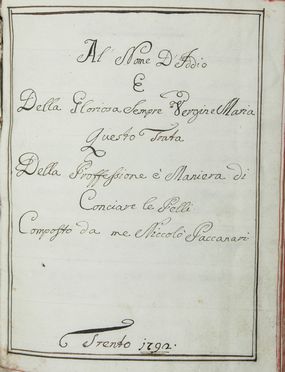 Al Nome D'Iddio
E
Della Gloriosa Sempre Vergine Maria
Questo Trata
Della Proffessione è Maniera di
Conciare le Pelli
Composto da me Niccolò Paccanari
Trento 1792.